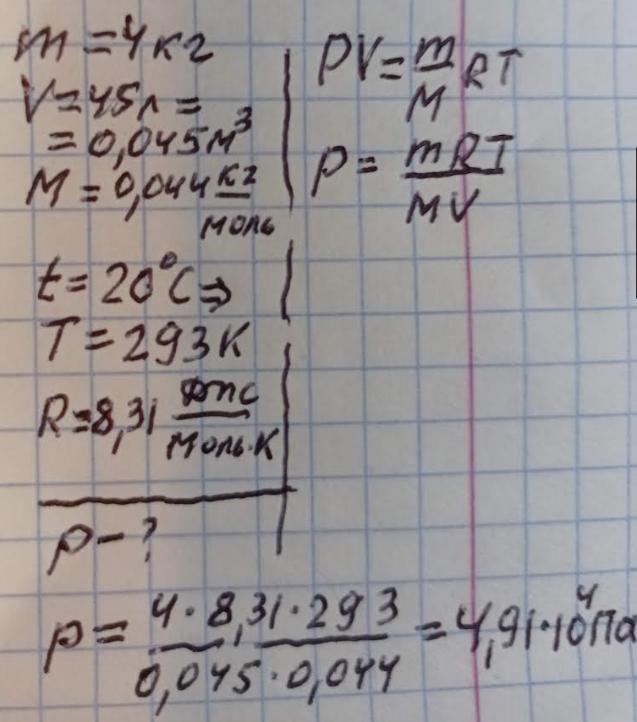 m = 4 кг
V = 45 л =
= 0,045 м³
M = 0,044 кг/моль
t = 20°C ⇒
T = 293 K
R = 8,31 Дж/моль·К
p – ?
PV = m/M RT
p = mRT/MV
p = 4·8,31·293/0,045·0,044 = 4,91·10⁴ Па